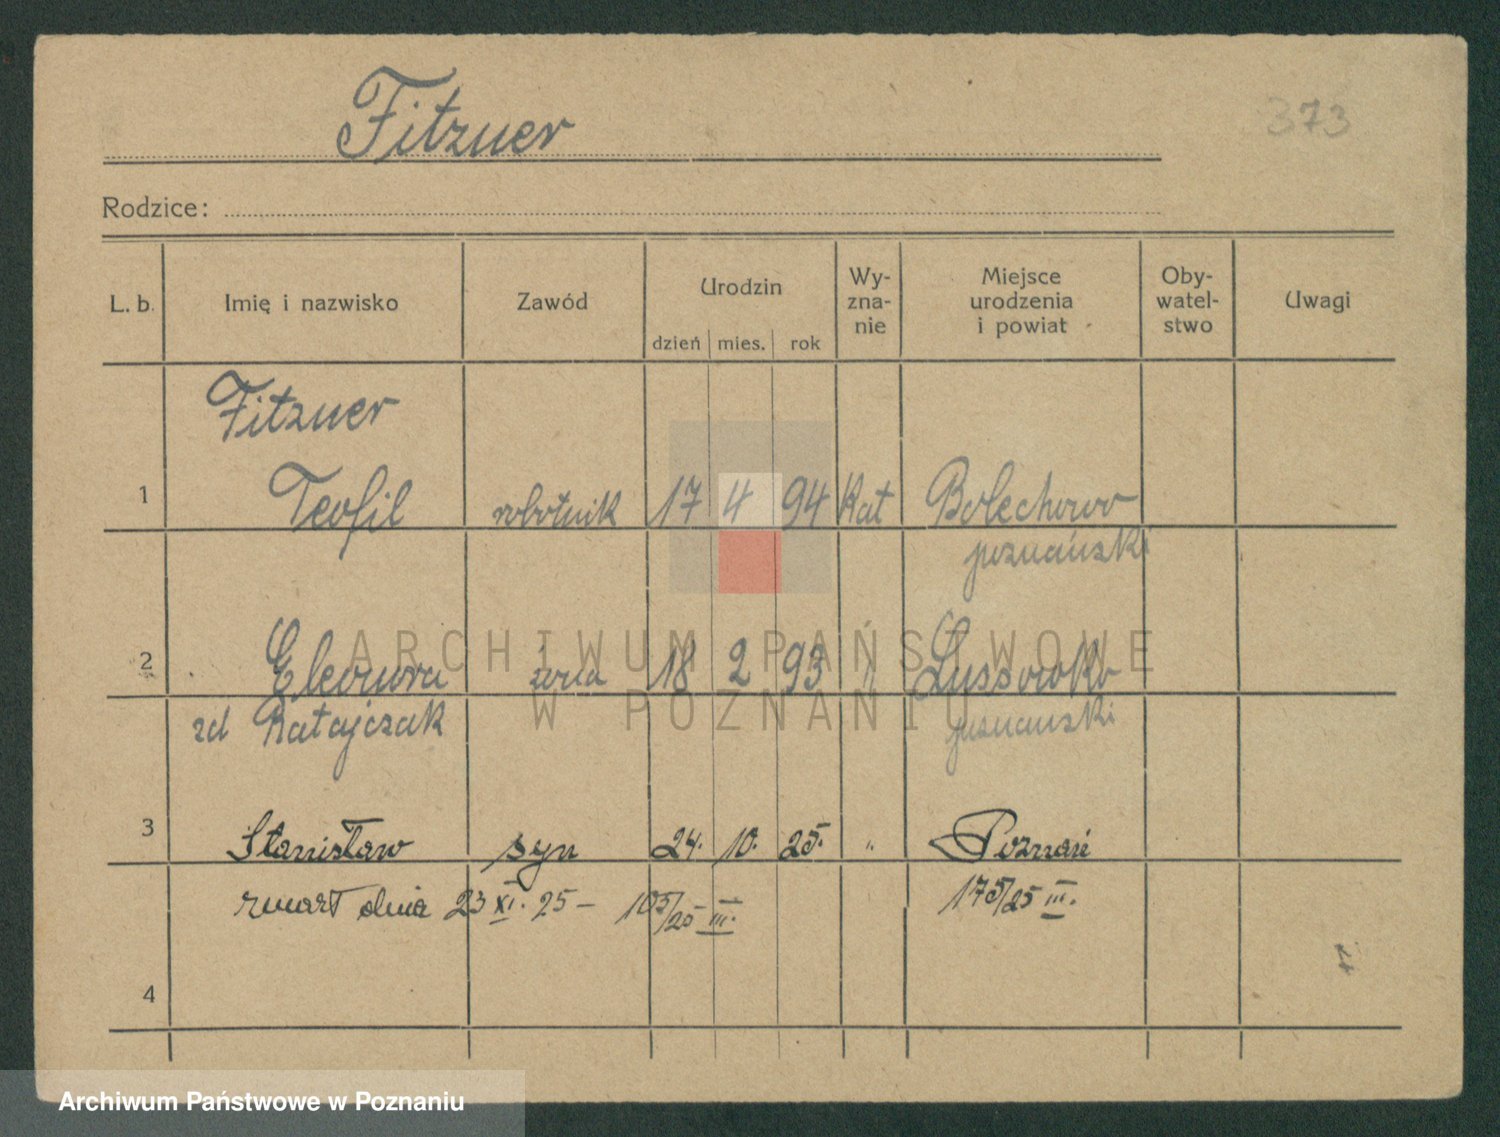 Fitzner
373
Rodzice:
L. b. Imię i nazwisko Zawód Urodzin Wy-zna-nie Miejsce urodzenia i powiat Oby-watel-stwo Uwagi
dzień mies. rok
Fitzner
1 Teofil robotnik 17 4 94 Kat Bolechowo
poznański
2 Eleonora żona 18 2 93 " Lussowko
zd Ratajczak poznanski
3 Stanisław syn 24. 10. 25. " Poznań
zmarł dnia 23 XI. 25 – 105/25 III. 175/25 III.
4
ARCHIWUM PAŃSTWOWE
W POZNANIU
Archiwum Państwowe w Poznaniu